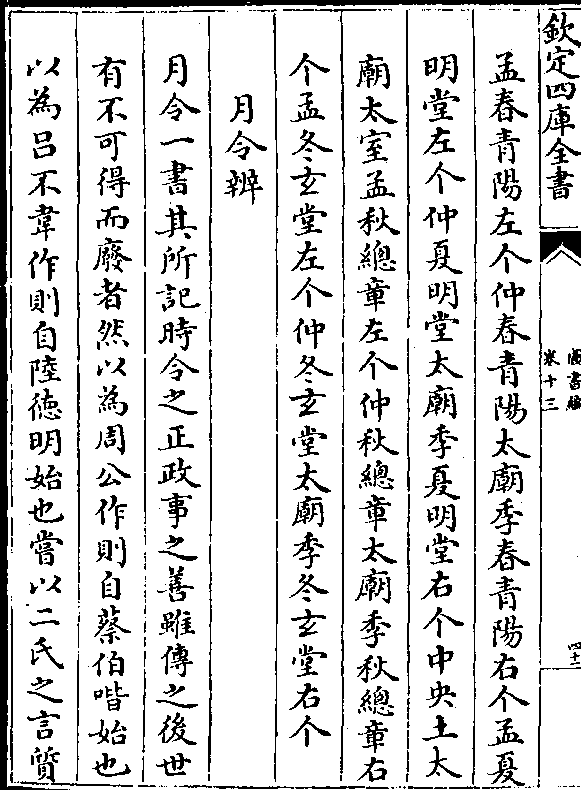 欽定四庫全書
圖書編
卷十三
四十二
孟春青陽左个仲春青陽太廟季春青陽右个孟夏
明堂左个仲夏明堂太廟季夏明堂右个中央土太
廟太室孟秋總章左个仲秋總章太廟季秋總章右
个孟冬玄堂左个仲冬玄堂太廟季冬玄堂右个
月令辨
月令一書其所記時令之正政事之善雖傳之後世
有不可得而廢者然以為周公作則自蔡伯喈始也
以為吕不韋作則自陸徳明始也嘗以二氏之言質